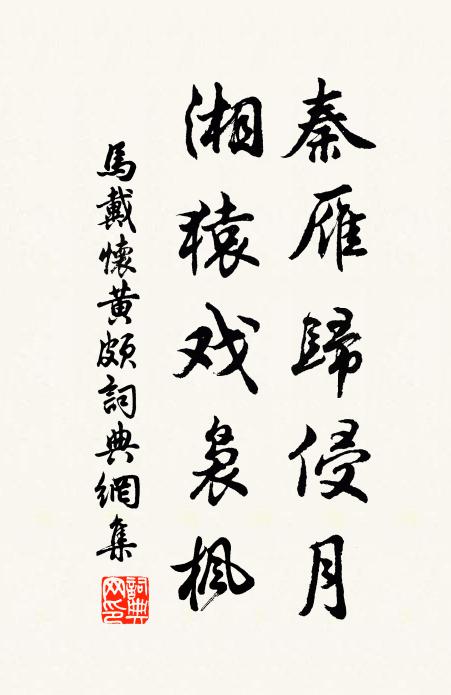 秦雁歸侵月
湘猿戏裊枫
馬戴懷黄頗詞典網集
詞典網印